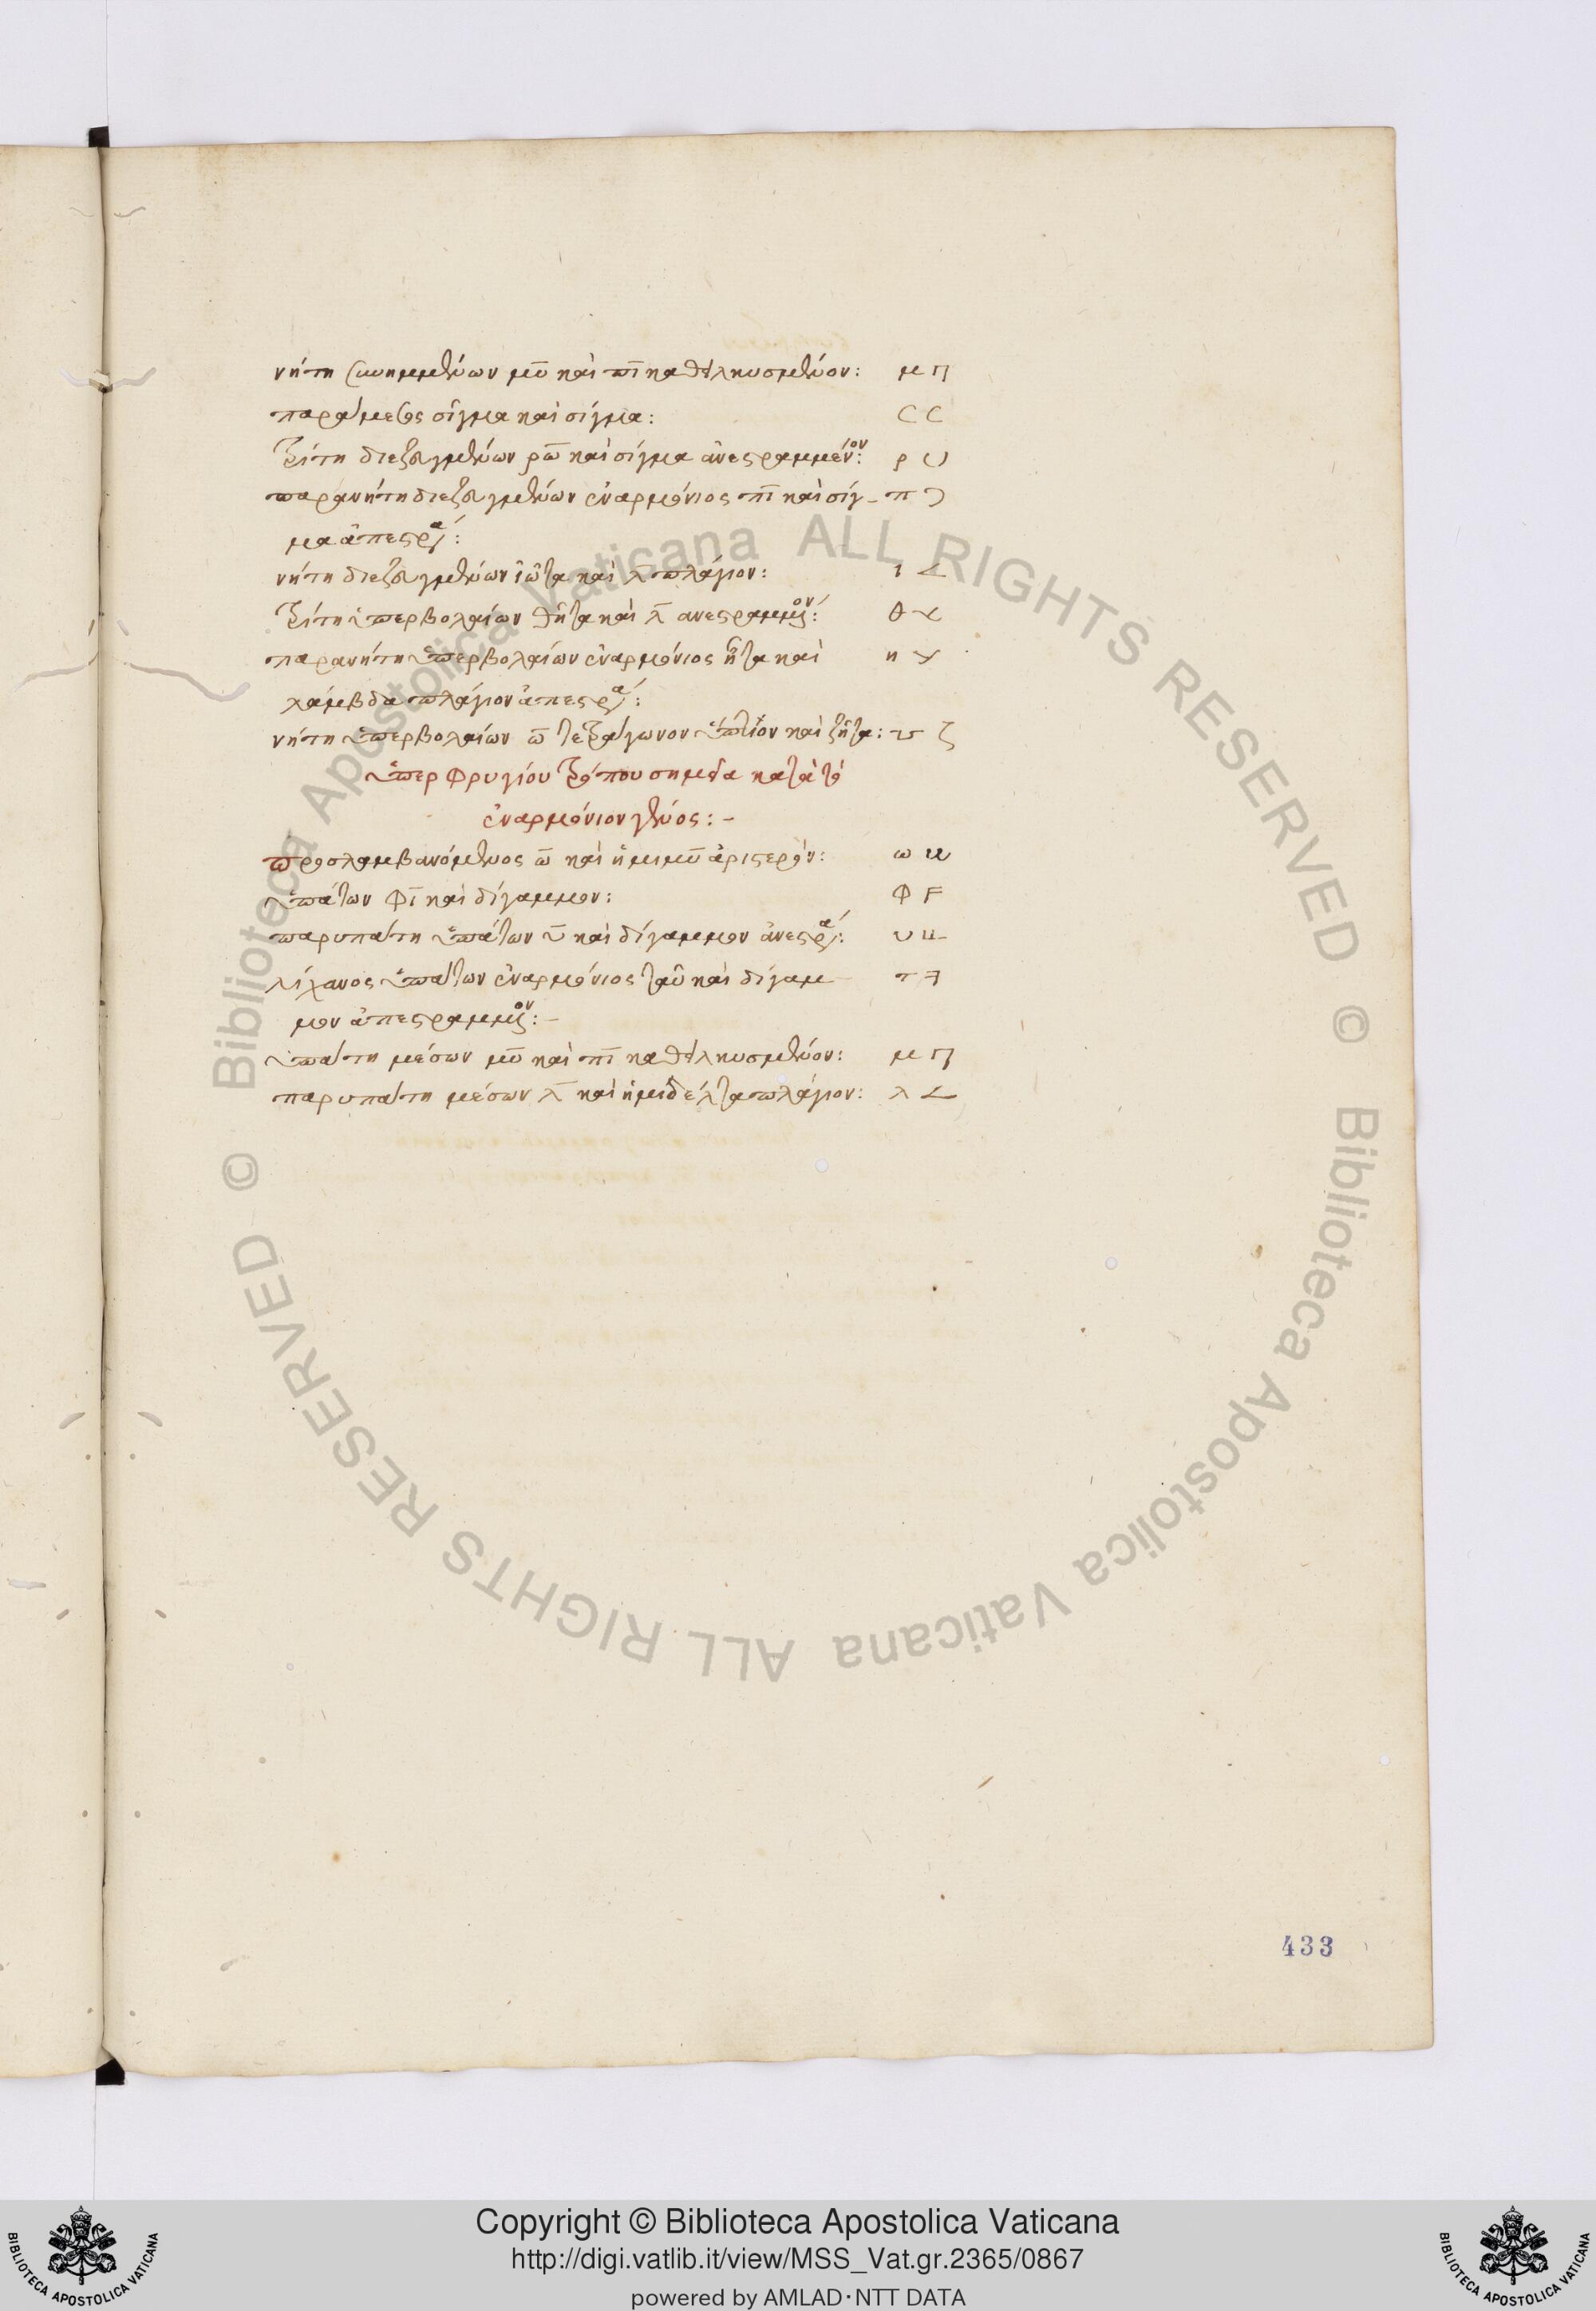 νήτη συνημμένων μῦ καὶ πῖ καθειλκυσμένον: μ Π
παράμεσος σίγμα καὶ σίγμα: C C
τρίτη διεζευγμένων ρῶ καὶ σίγμα ἀνεστραμμένον: ρ U
παρανήτη διεζευγμένων ἐναρμόνιος πῖ καὶ σίγ- π Ɔ
μα ἀπεστρα:
νήτη διεζευγμένων ἰῶτα καὶ λ πλάγιον: ι <
τρίτη ὑπερβολαίων θῆτα καὶ λ ανεστραμμον: θ
παρανήτη ὑπερβολαίων ἐναρμόνιος ἦτα καὶ η
λάμβδα πλάγιον ἀπεστρα:
νήτη ὑπερβολαίων ω τετράγωνον ὕπτιον καὶ ζῆτα: ζ
ὑπερφρυγίου τρόπου σημεῖα κατὰ τὸ
ἐναρμόνιον γένος:-
προσλαμβανόμενος ω καὶ ἡμιμῦ ἀριστερόν: ω
ὑπάτων φῖ καὶ δίγαμμον: Φ F
παρυπάτη ὑπάτων υ καὶ δίγαμμον ἀνεστρα: υ
λίχανος ὑπάτων ἐναρμόνιος ταῦ καὶ δίγαμ- τ
μον ἀπεστραμμον:-
ὑπάτη μέσων μῦ καὶ πῖ καθειλκυσμένον: μ Π
παρυπάτη μέσων λ καὶ ἡμιδέλτα πλάγιον: λ <
433
© Biblioteca Apostolica Vaticana ALL RIGHTS RESERVED © Biblioteca Apostolica Vaticana ALL RIGHTS RESERVED
Copyright © Biblioteca Apostolica Vaticana
http://digi.vatlib.it/view/MSS_Vat.gr.2365/0867
powered by AMLAD·NTT DATA
BIBLIOTECA APOSTOLICA VATICANA
BIBLIOTECA APOSTOLICA VATICANA